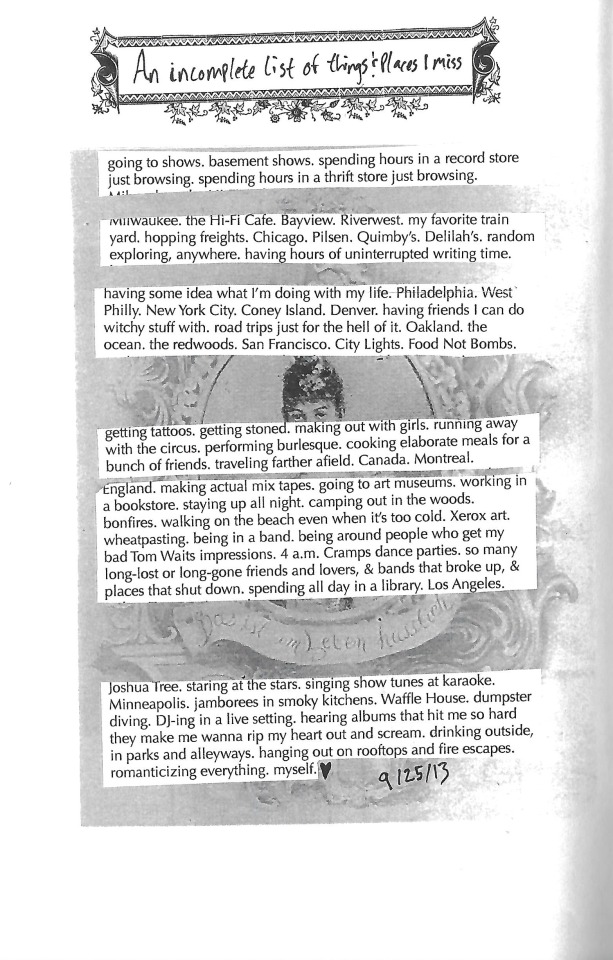 An incomplete list of things & Places I miss
going to shows. basement shows. spending hours in a record store
just browsing. spending hours in a thrift store just browsing.
Milwaukee. the Hi-Fi Cafe. Bayview. Riverwest. my favorite train
yard. hopping freights. Chicago. Pilsen. Quimby's. Delilah's. random
exploring, anywhere. having hours of uninterrupted writing time.
having some idea what I'm doing with my life. Philadelphia. West
Philly. New York City. Coney Island. Denver. having friends I can do
witchy stuff with. road trips just for the hell of it. Oakland. the
ocean. the redwoods. San Francisco. City Lights. Food Not Bombs.
getting tattoos. getting stoned. making out with girls. running away
with the circus. performing burlesque. cooking elaborate meals for a
bunch of friends. traveling farther afield. Canada. Montreal.
England. making actual mix tapes. going to art museums. working in
a bookstore. staying up all night. camping out in the woods.
bonfires. walking on the beach even when it's too cold. Xerox art.
wheatpasting. being in a band. being around people who get my
bad Tom Waits impressions. 4 a.m. Cramps dance parties. so many
long-lost or long-gone friends and lovers, & bands that broke up, &
places that shut down. spending all day in a library. Los Angeles.
Das ist im Leben hässlich
Joshua Tree. staring at the stars. singing show tunes at karaoke.
Minneapolis. jamborees in smoky kitchens. Waffle House. dumpster
diving. DJ-ing in a live setting. hearing albums that hit me so hard
they make me wanna rip my heart out and scream. drinking outside,
in parks and alleyways. hanging out on rooftops and fire escapes.
romanticizing everything. myself.♥ 9/25/13